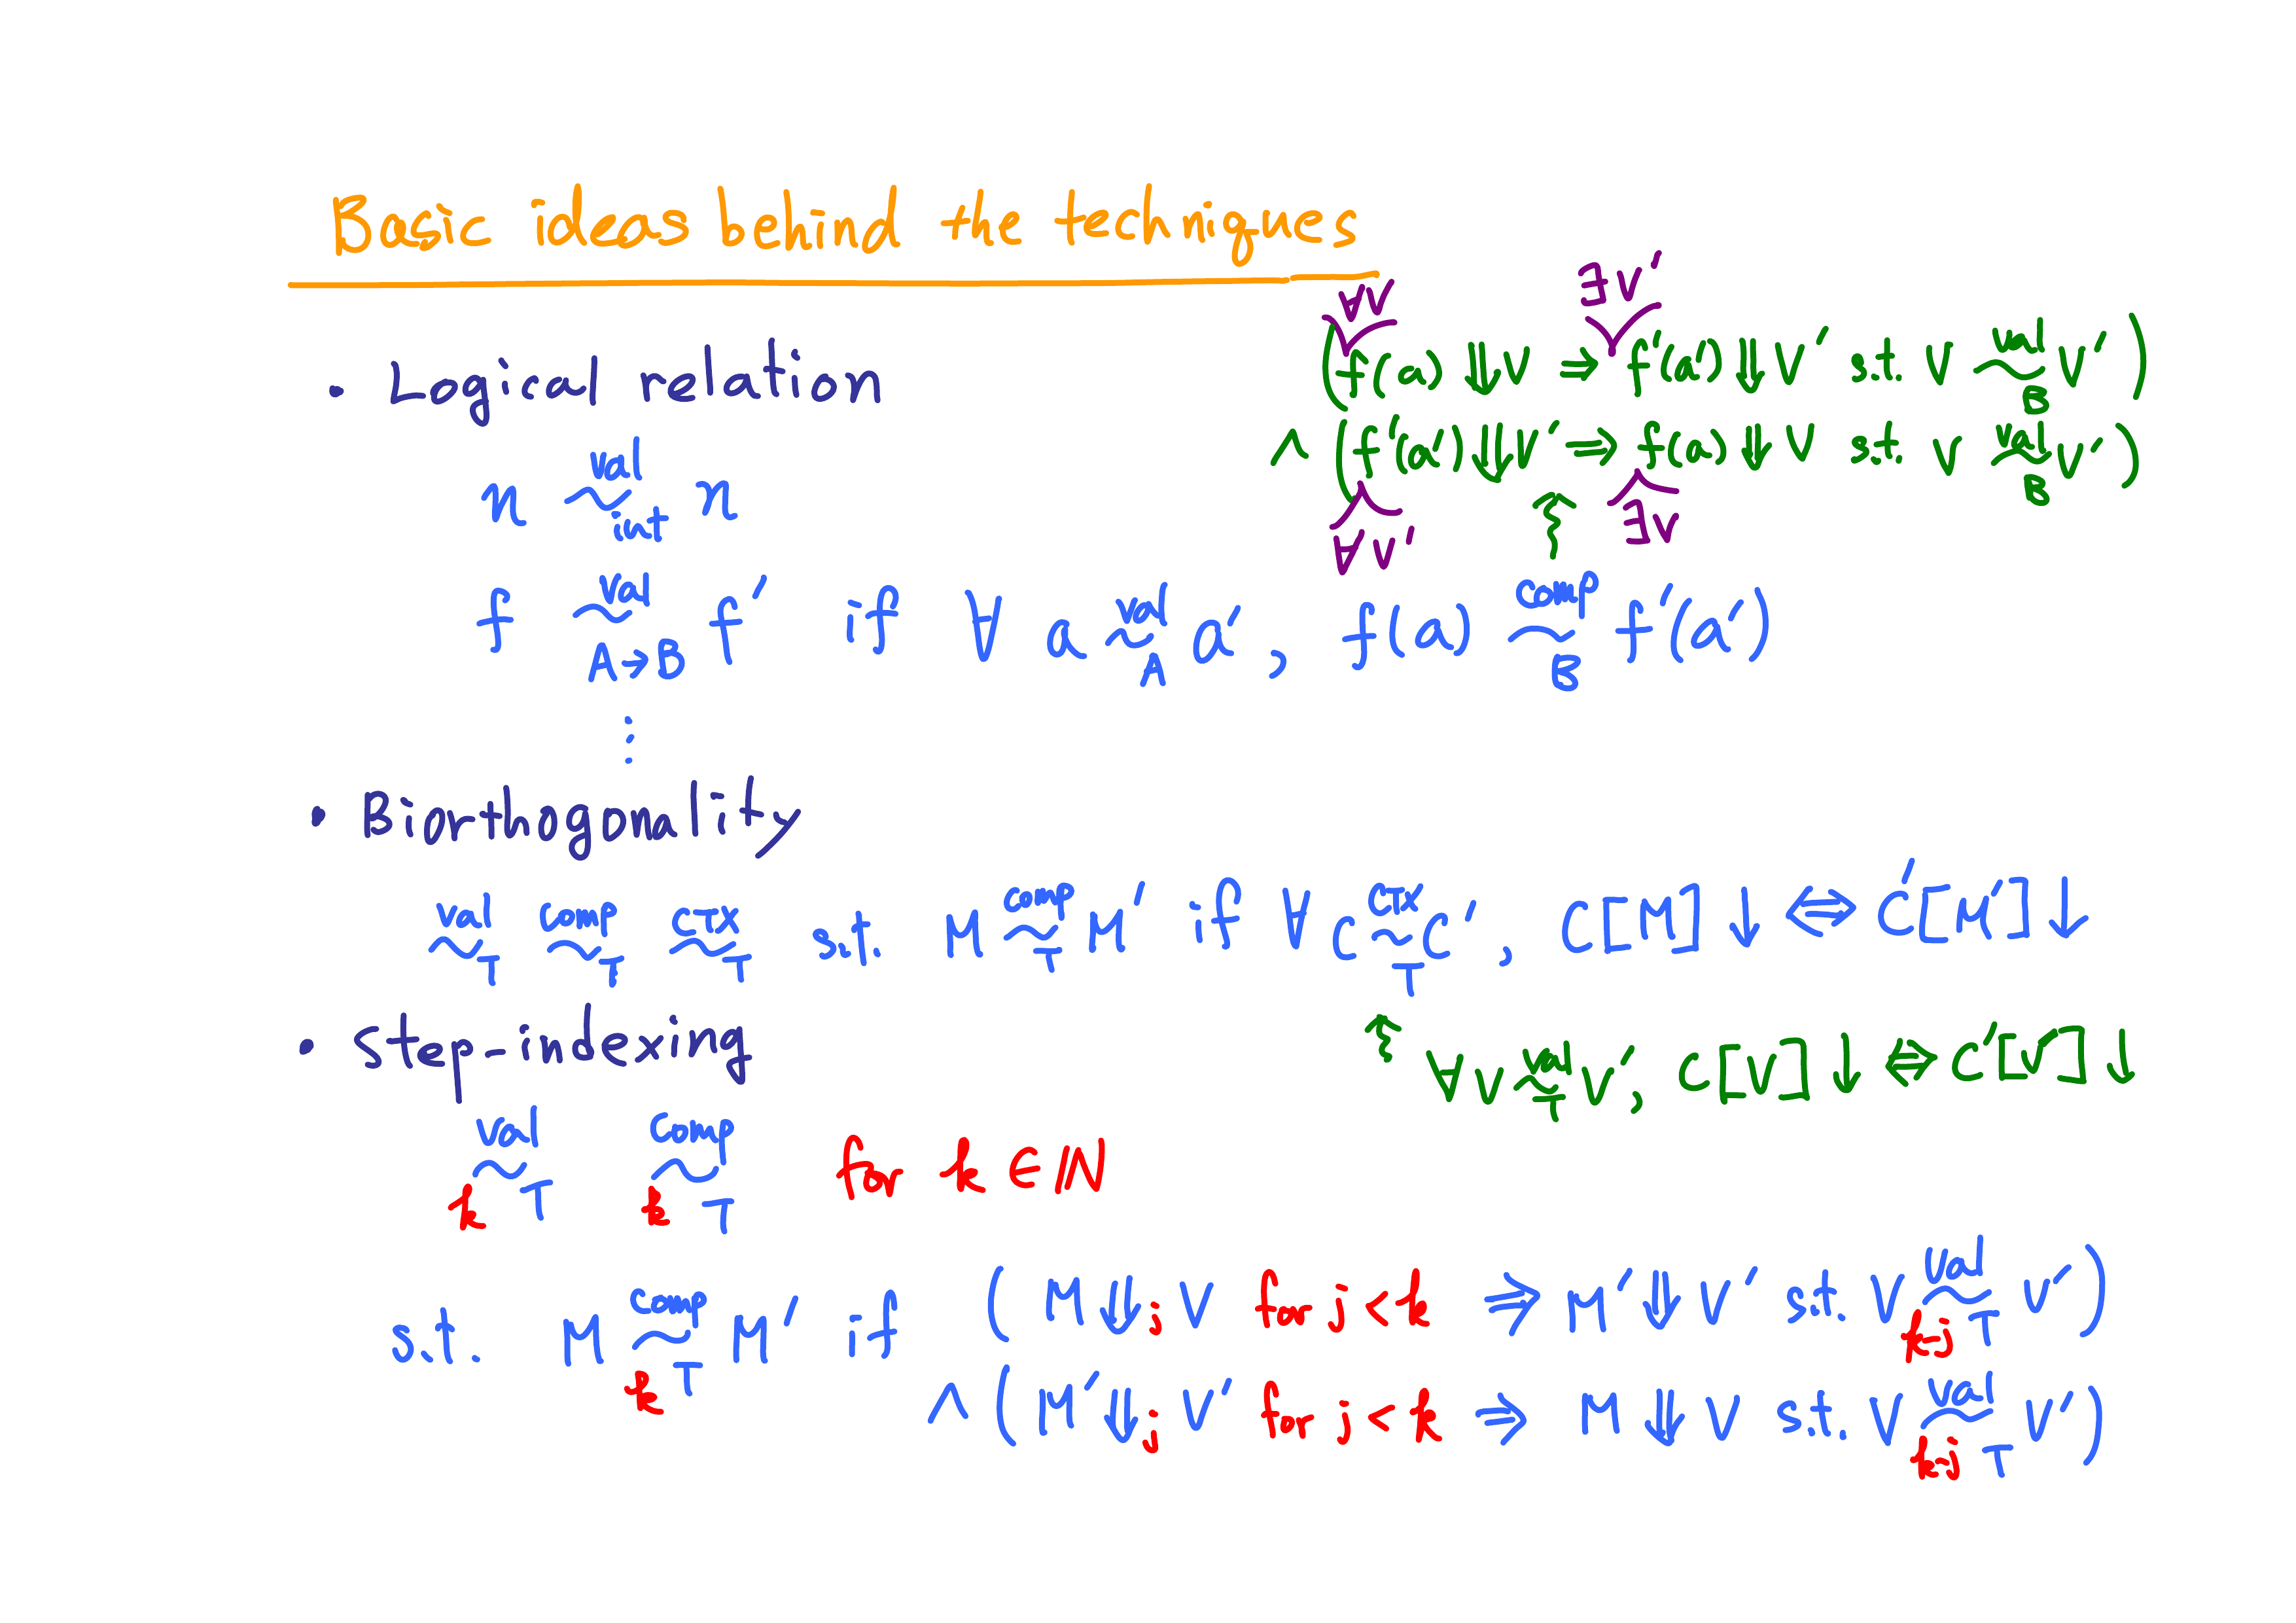 Basic ideas behind the techniques
∀V ∃V′
• Logical relation
(f(a) ⇓ V ⇒ f′(a′) ⇓ V′ s.t. V ~^val_B V′)
∧ (f′(a′) ⇓ V′ ⇒ f(a) ⇓ V s.t. V ~^val_B V′)
∀V′ ∃V
n ~^val_int n
f ~^val_{A→B} f′ if ∀ a ~^val_A a′, f(a) ~^comp_B f′(a′)
⋮
• Biorthogonality
~^val_T ~^comp_T ~^CTX_T s.t. M ~^comp_T M′ if ∀ C ~^CTX_T C′, C[M]↓ ⇔ C′[M′]↓
∀ V ~^val_T V′, C[V]↓ ⇔ C′[V′]↓
• Step-indexing
~^val_{k T} ~^comp_{k T} for k ∈ ℕ
s.t. M ~^comp_{k T} M′ if (M ⇓_j V for j < k ⇒ M′ ⇓ V′ s.t. V ~^val_{k-j T} V′)
∧ (M′ ⇓_j V′ for j < k ⇒ M ⇓ V s.t. V ~^val_{k-j T} V′)